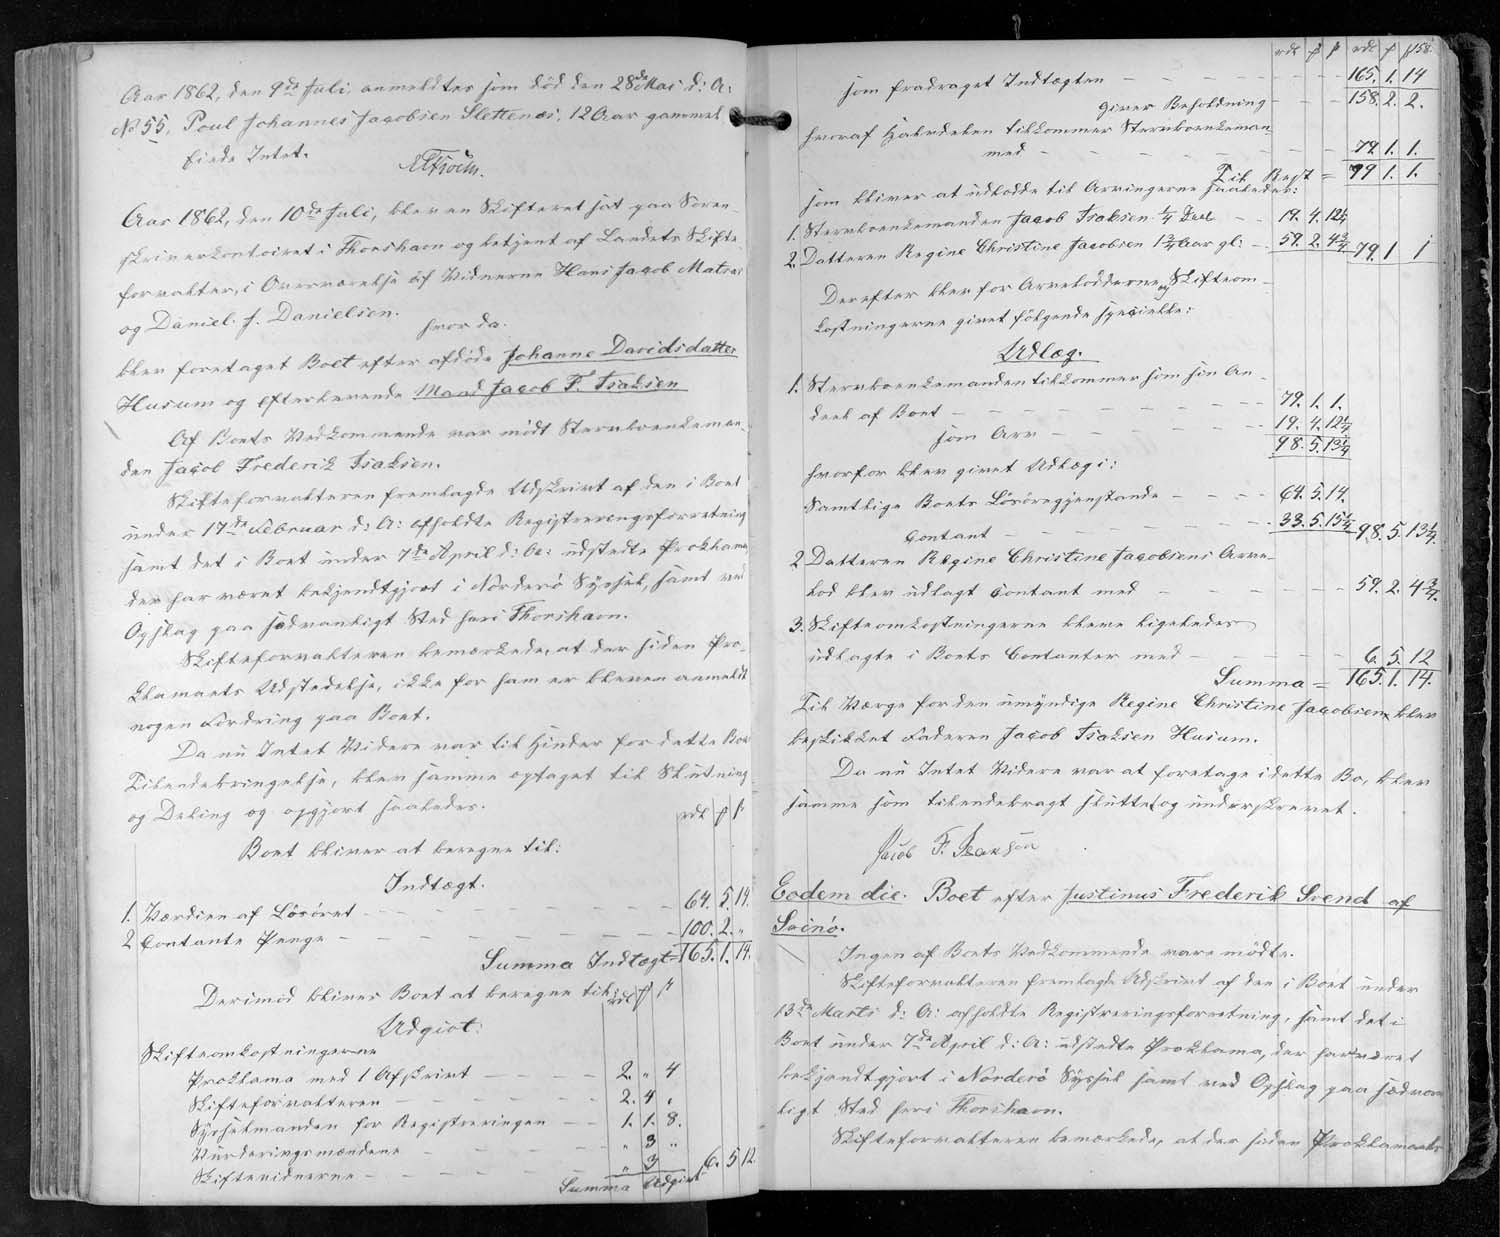 Aar 1862, den 9de Juli, anmeldtes som död den 28de Mai d: A:
No 55, Poul Johannes Jacobsen Slettenæs, 12 Aar gammel
Eiede Intet.
Aar 1862, den 10de Juli, blev en Skifteret sat paa Soren-
skriverkontoiret i Thorshavn og betjent af Landets Skifte-
forvalter, i Overværelse af Vidnerne Hans Jacob Matras
og Daniel J. Danielsen.
hvor da.
blev foretaget Boet efter afdöde Johanne Davidsdatter
Husum og efterlevende Mand Jacob F. Isaksen
Af Boets Vedkommende var mödt Stervboenkeman-
den Jacob Frederik Isaksen.
Skifteforvalteren fremlagde Udskrivt af den i Boet
under 17de Februar d: A: afholdte Registreringsforretning
samt det i Boet under 7de April d: A: udstedte Proklama,
der har været bekjendtgjort i Norderö Syssel, samt ved
Opslag paa sædvanligt Sted heri Thorshavn.
Skifteforvalteren bemærkede, at der siden Pro-
klamaets Udstedelse, ikke for ham er bleven anmeldt
nogen Fordring paa Boet.
Da nu Intet Videre var til Hinder for dette Boes
Tilendebringelse, blev samme optaget til Slutning
og Deling og opgjort saaledes.
rdl ß ß
Boet bliver at beregne til:
Indtægt.
1. Værdien af Lösöret - - - 64. 5. 14.
2 Contante Penge - - - 100. 2. "
Summa Indtægt = 165. 1. 14.
Derimod bliver Boet at beregne til:
Udgivt:
Skifteomkostningerne
Proklama med 1 Afskrivt - - - 2. " 4
Skifteforvalteren - - - 2. 4 "
Sysselmanden for Registreringen - - 1. 1. 8.
Vurderingsmændene - - - " 3 "
Skiftevidnerne - - - " 3
Summa Udgivt 6. 5 12
rdl ß ß rdl ß ß 158.
som fradraget Indtægten - - - 165. 1. 14
Giver Beholdning - - - 158. 2. 2.
hvoraf Halvdelen tilkommer Stervboenkeman-
med - - - 79. 1. 1.
Til Rest = 79 1. 1.
som bliver at udlodde til Arvingerne saaledes:
1. Stervboenkemanden Jacob Isaksen 1/4 Deel - - 19. 4. 12 1/4
2. Datteren Regine Christine Jacobsen 1 3/4 Aar gl: - 59. 2. 4 3/4 79. 1 1
Derefter blev for Arvelodderne og Skifteom-
kostningerne givet fölgende specielle:
Udlæg.
1. Stervboenkemanden tilkommer som sin An-
deel af Boet - - - 79. 1. 1.
som Arv - - - 19. 4. 12 1/4
98. 5. 13 1/4
hvorfor blev givet Udlæg i:
Samtlige Boets Lösöregjenstande - - - 64. 5. 14.
Contant - - - 33. 5. 15 1/4 98. 5. 13 1/4.
2 Datteren Regine Christine Jacobsens Arve-
lod blev udlagt Contant med - - - 59. 2. 4 3/4.
3. Skifteomkostningerne bleve ligeledes
udlagte i Boets Contanter med - - - 6. 5. 12
Summa = 165. 1. 14.
Til Værge for den umyndige Regine Christine Jacobsen, blev
beskikket Faderen Jacob Isaksen Husum.
Da nu Intet Videre var at foretage i dette Bo, blev
samme som tilendebragt sluttet og underskrevet.
Jacob F. Isaksen
Eodem die. Boet efter Justinus Frederik Svend af
Svinö.
Ingen af Boets Vedkommende vare mödte.
Skifteforvalteren fremlagde Udskrivt af den i Boet under
13de Marts d: A: afholdte Registreringsforretning, samt det i
Boet under 7de April d: A: udstedte Proklama, der har været
bekjendtgjort i Norderö Syssel samt ved Opslag paa sædvan-
ligt Sted heri Thorshavn.
Skifteforvalteren bemærkede, at der siden Proklamaets